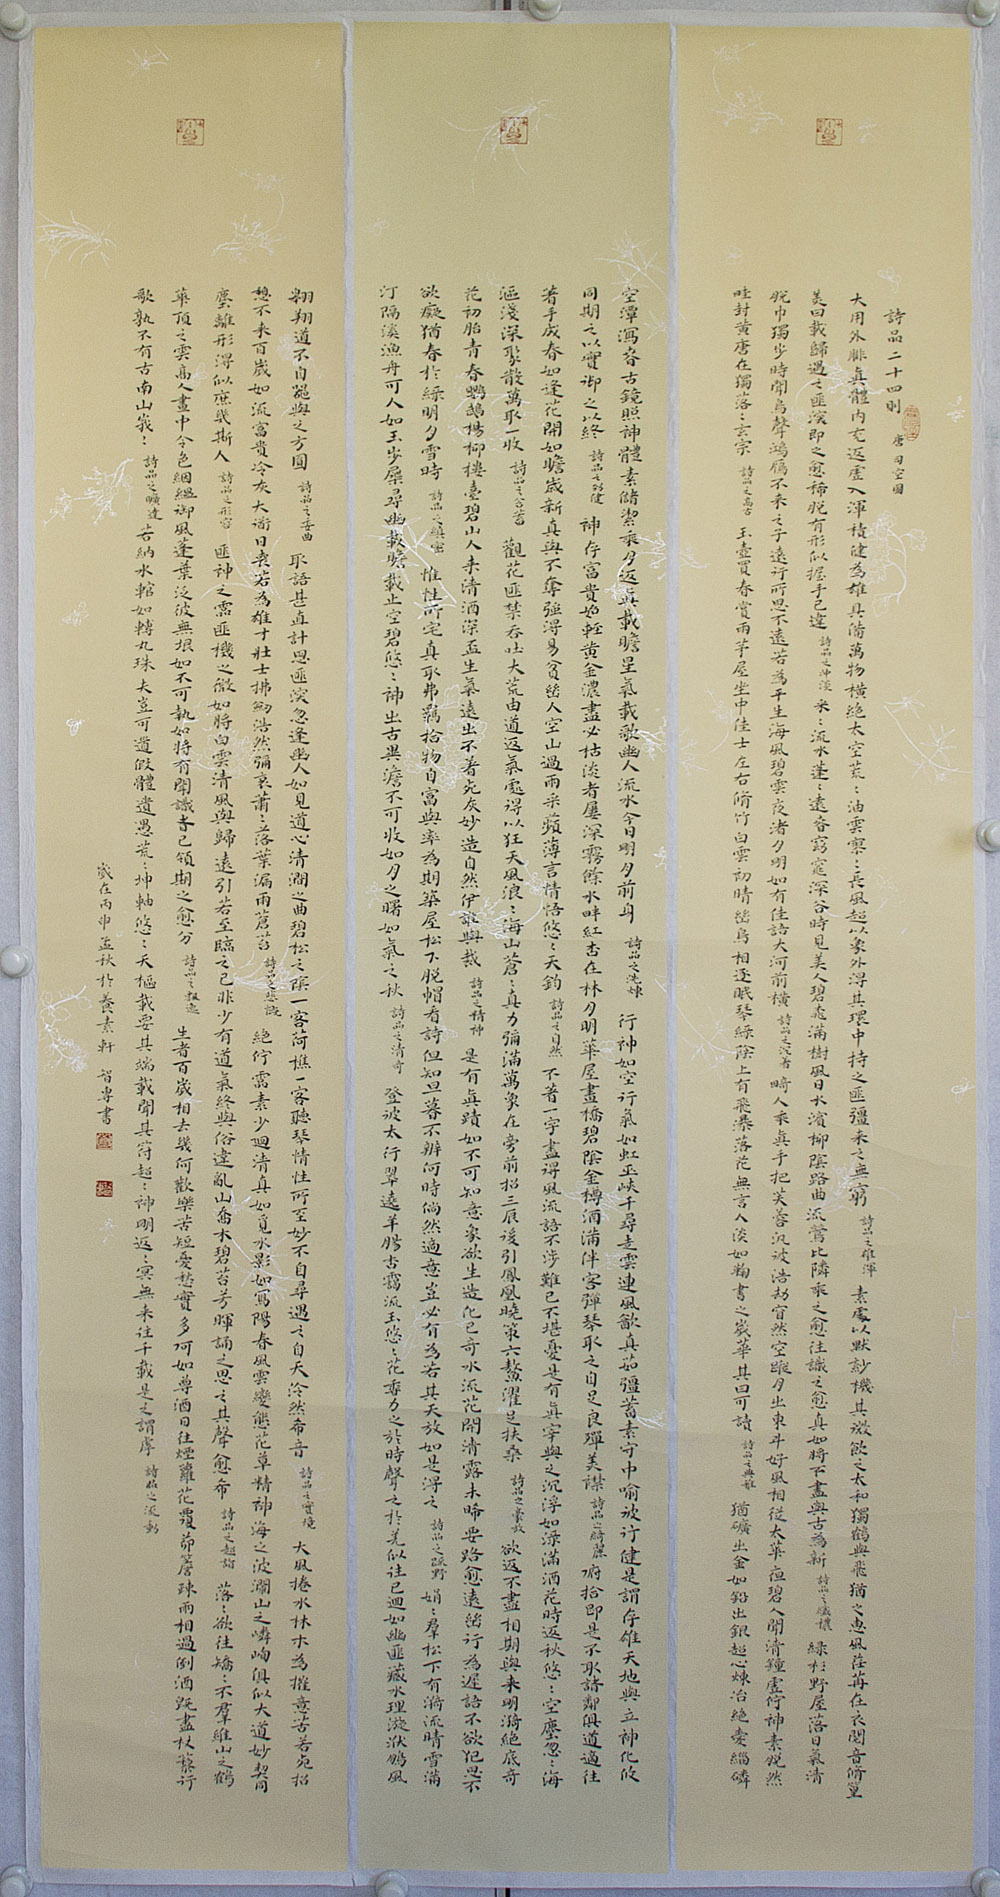 詩品二十四則 唐 司空圖
大用外腓真體內充返虛入渾積健為雄具備萬物橫絕太空荒〻油雲寥〻長風超以象外得其環中持之匪彊來之無窮 詩品之雄渾 素處以默妙機其微飲之太和獨鶴與飛猶之惠風荏苒在衣閱音脩篁
美曰載歸遇之匪深即之愈稀脫有形似握手已違 詩品之沖淡 采〻流水蓬〻遠春窈窕深谷時見美人碧桃滿樹風日水濱柳陰路曲流鶯比隣乘之愈往識之愈真如將不盡與古為新 詩品之纖穠 綠杉野屋落日氣清
脫巾獨步時聞鳥聲鴻雁不來之子遠行所思不遠若為平生海風碧雲夜渚月明如有佳語大河前橫 詩品之沈著 畸人乘真手把芙蓉汎彼浩劫窅然空蹤月出東斗好風相從太華夜碧人聞清鐘虛佇神素脫然
畦封黃唐在獨落〻玄宗 詩品之高古 玉壺買春賞雨茅屋坐中佳士左右脩竹白雲初晴幽鳥相逐眠琴綠陰上有飛瀑落花無言人淡如菊書之歲華其曰可讀 詩品之典雅 猶礦出金如鉛出銀超心煉冶絕愛緇磷
空潭瀉春古鏡照神體素儲潔乘月返真載瞻星氣載歌幽人流水今日明月前身 詩品之洗煉 行神如空行氣如虹巫峽千尋走雲連風飲真茹彊蓄素守中喻彼行健是謂存雄天地與立神化攸
同期之以實御之以終 詩品之勁健 神存富貴始輕黃金濃盡必枯淡者屢深霧餘水畔紅杏在林月明華屋畫橋碧陰金樽酒滿伴客彈琴取之自足良殫美襟 詩品之綺麗 俯拾即是不取諸鄰俱道適往
著手成春如逢花開如瞻歲新真與不奪強得易貧幽人空山過雨采蘋薄言情悟悠〻天鈞 詩品之自然 不著一字盡得風流語不涉難已不堪憂是有真宰與之沉浮如淥滿酒花時返秋悠〻空塵忽〻海
漚淺深聚散萬取一收 詩品之含蓄 觀花匪禁吞吐大荒由道返氣處得以狂天風浪〻海山蒼〻真力彌滿萬象在旁前招三辰後引鳳凰曉策六鰲濯足扶桑 詩品之豪放 欲返不盡相期與來明漪絕底奇
花初胎青春鸚鵡楊柳樓臺碧山人來清酒深盃生氣遠出不著死灰妙造自然伊誰與裁 詩品之精神 是有真蹟如不可知意象欲生造化已奇水流花開清露未晞要路愈遠幽行為遲語不欲犯思不
欲癡猶春於綠明月雪時 詩品之縝密 惟性所宅真取弗羈拾物自富與率為期築屋松下脫帽看詩但知旦暮不辨何時倘然適意豈必有為若其天放如是得之 詩品之疏野 娟〻羣松下有漪流晴雪滿
汀隔溪漁舟可人如玉步屧尋幽載瞻載止空碧悠〻神出古異澹不可收如月之曙如氣之秋 詩品之清奇 登彼太行翠遶羊腸杳靄流玉悠〻花香力之於時聲之於羌似往已迴如幽匪藏水理漩洑鵬風
翱翔道不自器與之方圓 詩品之委曲 取語甚直計思匪深忽逢幽人如見道心清澗之曲碧松之陰一客荷樵一客聽琴情性所至妙不自尋遇之自天泠然希音 詩品之實境 大風捲水林木為摧意苦若死招
憩不來百歲如流富貴冷灰大道日喪若為雄才壯士拂劍浩然彌哀蕭〻落葉漏雨蒼苔 詩品之悲慨 絕佇靈素少迴清真如覓水影如寫陽春風雲變態花草精神海之波瀾山之嶙峋俱似大道妙契同
塵離形得似庶幾斯人 詩品之形容 匪神之靈匪機之微如將白雲清風與歸遠引若至臨之已非少有道氣終與俗違亂山喬木碧苔芳暉誦之思之其聲愈希 詩品之超詣 落〻欲往矯〻不羣緱山之鶴
華頂之雲高人畫中令色絪縕御風蓬葉泛彼無垠如不可執如將有聞識者已領期之愈分 詩品之飄逸 生者百歲相去幾何歡樂苦短憂愁實多何如尊酒日往煙蘿花覆茆簷疎雨相過倒酒既盡杖藜行
歌孰不有古南山峩〻 詩品之曠達 若納水輨如轉丸珠夫豈可道假體遺愚荒〻坤軸悠〻天樞載要其端載聞其符超〻神明返〻冥無來往千載是之謂虖 詩品之流動
歲在丙申孟秋於養素軒 智專書